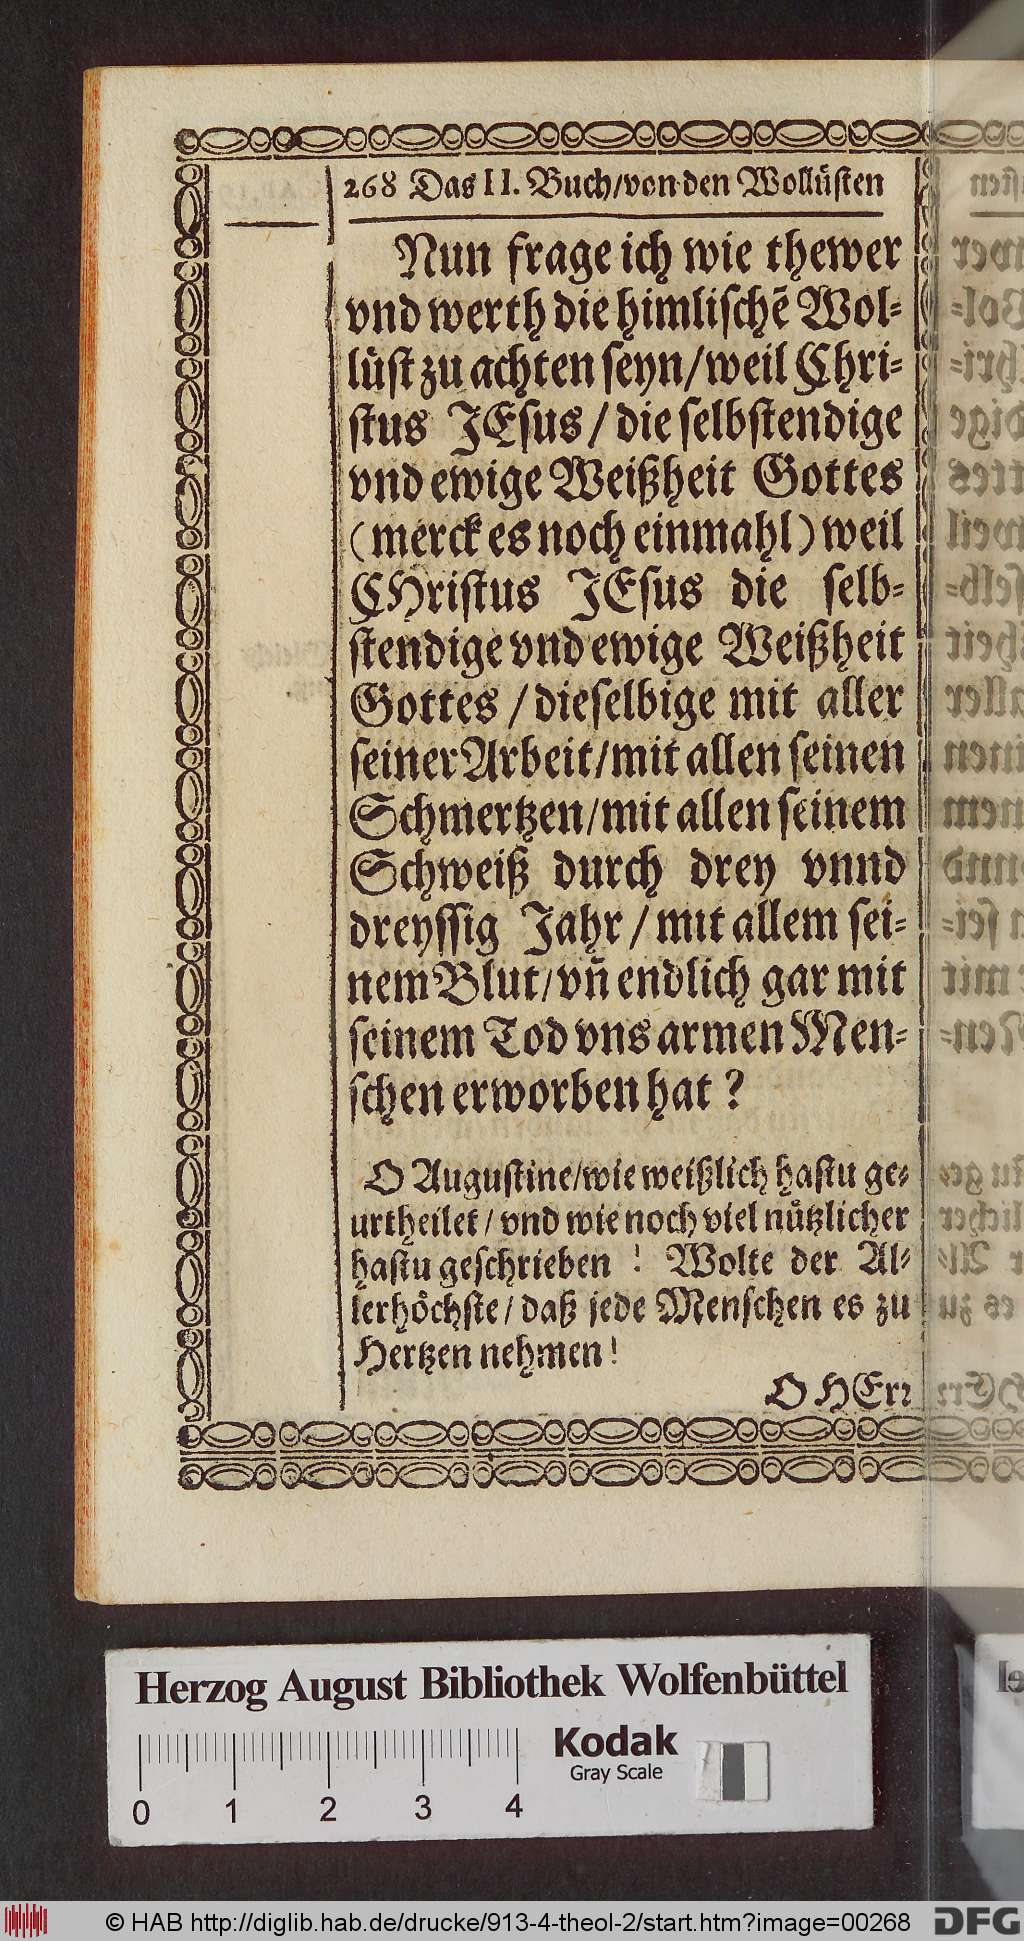 268 Das II. Buch/von den Wollüsten
Nun frage ich wie thewer
vnd werth die himlischẽ Wol-
lüst zu achten seyn/weil Chri-
stus JEsus/die selbstendige
vnd ewige Weißheit Gottes
(merck es noch einmahl) weil
CHristus JEsus die selb-
stendige vnd ewige Weißheit
Gottes/dieselbige mit aller
seiner Arbeit/mit allen seinen
Schmertzen/mit allen seinem
Schweiß durch drey vnnd
dreyssig Jahr/mit allem sei-
nem Blut/vñ endlich gar mit
seinem Tod vns armen Men-
schen erworben hat?
O Augustine/wie weißlich hastu ge-
urtheilet/vnd wie noch viel nützlicher
hastu geschrieben! Wolte der Al-
lerhöchste/daß jede Menschen es zu
Hertzen nehmen!
O HErr
Herzog August Bibliothek Wolfenbüttel
0 1 2 3 4
Kodak
Gray Scale
© HAB http://diglib.hab.de/drucke/913-4-theol-2/start.htm?image=00268
DFG